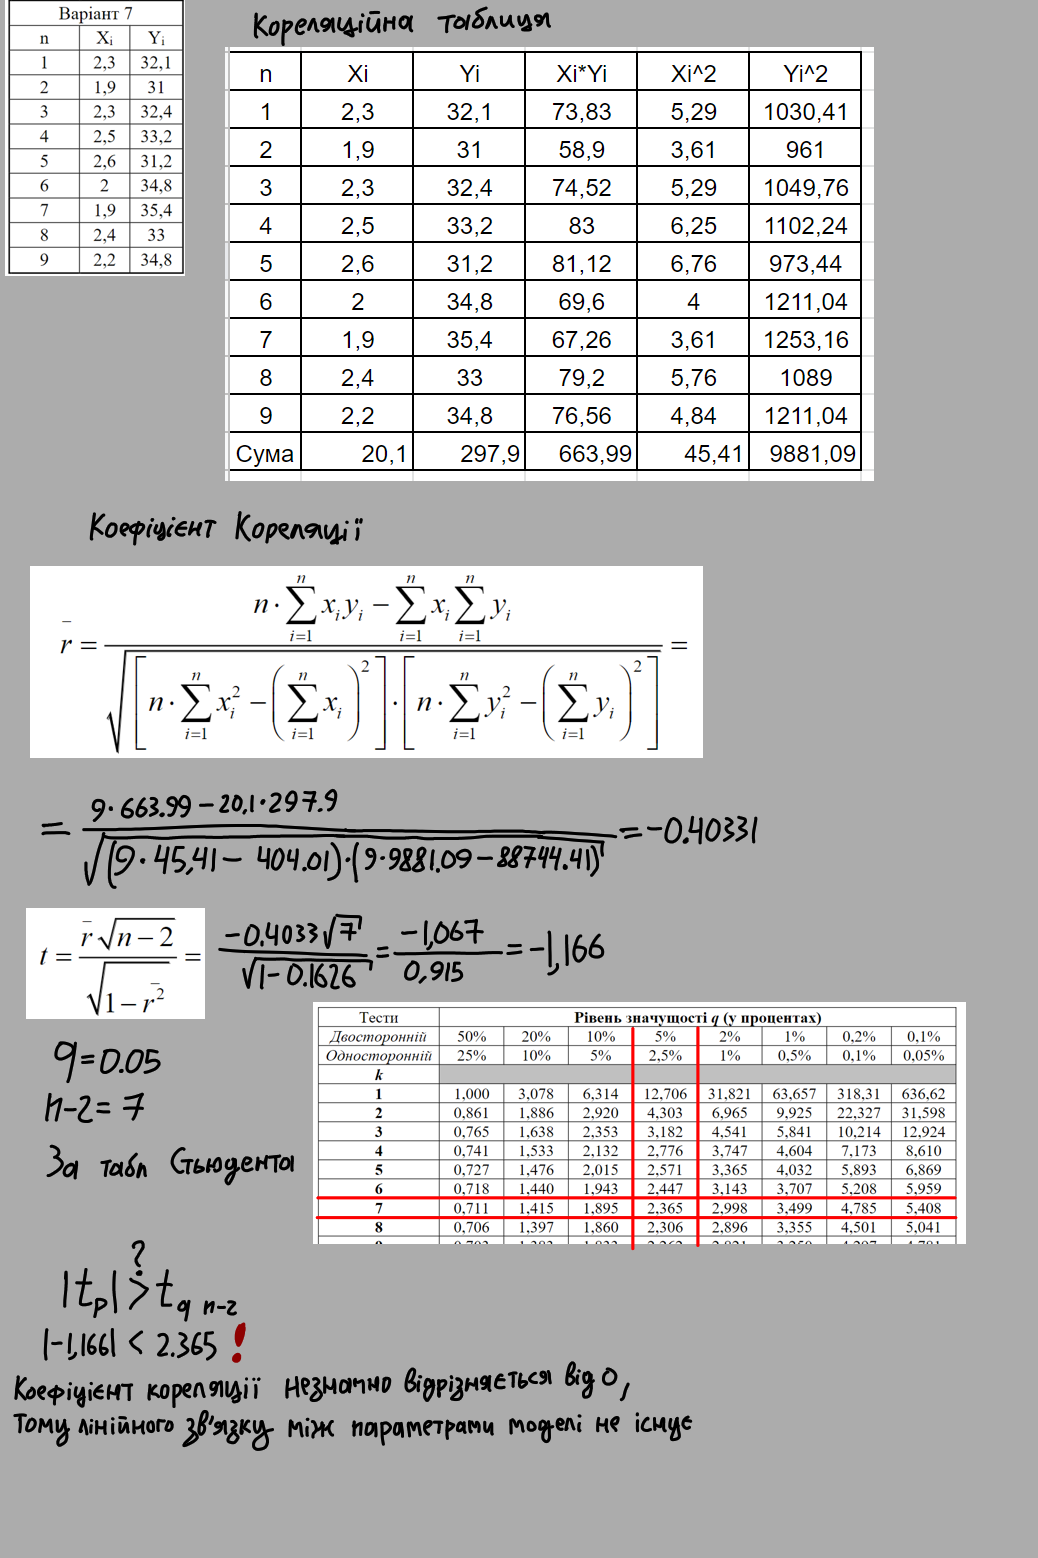 Варіант 7
n Xi Yi
1 2,3 32,1
2 1,9 31
3 2,3 32,4
4 2,5 33,2
5 2,6 31,2
6 2 34,8
7 1,9 35,4
8 2,4 33
9 2,2 34,8
Кореляційна таблиця
n Xi Yi Xi*Yi Xi^2 Yi^2
1 2,3 32,1 73,83 5,29 1030,41
2 1,9 31 58,9 3,61 961
3 2,3 32,4 74,52 5,29 1049,76
4 2,5 33,2 83 6,25 1102,24
5 2,6 31,2 81,12 6,76 973,44
6 2 34,8 69,6 4 1211,04
7 1,9 35,4 67,26 3,61 1253,16
8 2,4 33 79,2 5,76 1089
9 2,2 34,8 76,56 4,84 1211,04
Сума 20,1 297,9 663,99 45,41 9881,09
Коефіцієнт Кореляції
r̄ = (n·∑ᵢ₌₁ⁿ xᵢyᵢ − ∑ᵢ₌₁ⁿ xᵢ ∑ᵢ₌₁ⁿ yᵢ) / √([n·∑ᵢ₌₁ⁿ xᵢ² − (∑ᵢ₌₁ⁿ xᵢ)²]·[n·∑ᵢ₌₁ⁿ yᵢ² − (∑ᵢ₌₁ⁿ yᵢ)²]) =
= (9·663.99 − 20,1·297.9) / √((9·45,41 − 404.01)·(9·9881.09 − 88744.41)) = −0.40331
t = r̄√(n−2) / √(1−r̄²) = −0.4033√7 / √(1−0.1626) = −1,067 / 0,915 = −1,166
q=0.05
n-2=7
За табл Стьюдента
Тести Рівень значущості q (у процентах)
Двосторонній 50% 20% 10% 5% 2% 1% 0,2% 0,1%
Односторонній 25% 10% 5% 2,5% 1% 0,5% 0,1% 0,05%
k
1 1,000 3,078 6,314 12,706 31,821 63,657 318,31 636,62
2 0,861 1,886 2,920 4,303 6,965 9,925 22,327 31,598
3 0,765 1,638 2,353 3,182 4,541 5,841 10,214 12,924
4 0,741 1,533 2,132 2,776 3,747 4,604 7,173 8,610
5 0,727 1,476 2,015 2,571 3,365 4,032 5,893 6,869
6 0,718 1,440 1,943 2,447 3,143 3,707 5,208 5,959
7 0,711 1,415 1,895 2,365 2,998 3,499 4,785 5,408
8 0,706 1,397 1,860 2,306 2,896 3,355 4,501 5,041
?
|tp| > tq n-2
|-1,166| < 2.365 !
Коефіцієнт кореляції незначно відрізняється від 0,
Тому лінійного зв'язку між параметрами моделі не існує